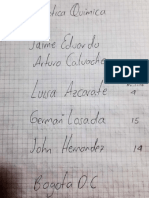 Química
Jaime Eduardo
Arturo Calvache
Luisa Azcarate 4
Germán Losada 15
John Hernandez 14
Bogotá D.C